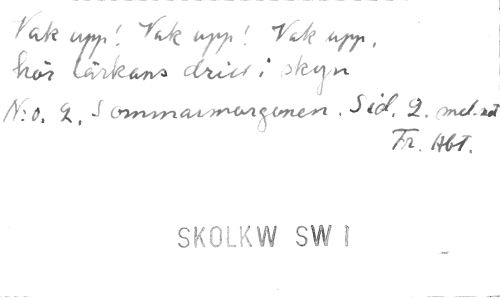 Vak upp! Vak upp! Vak upp,
hör lärkans drill i skyn
N:o. 2. Sommarmorgonen. Sid. 2. mel. not
Fr. Abt.
SKOLKW SW I